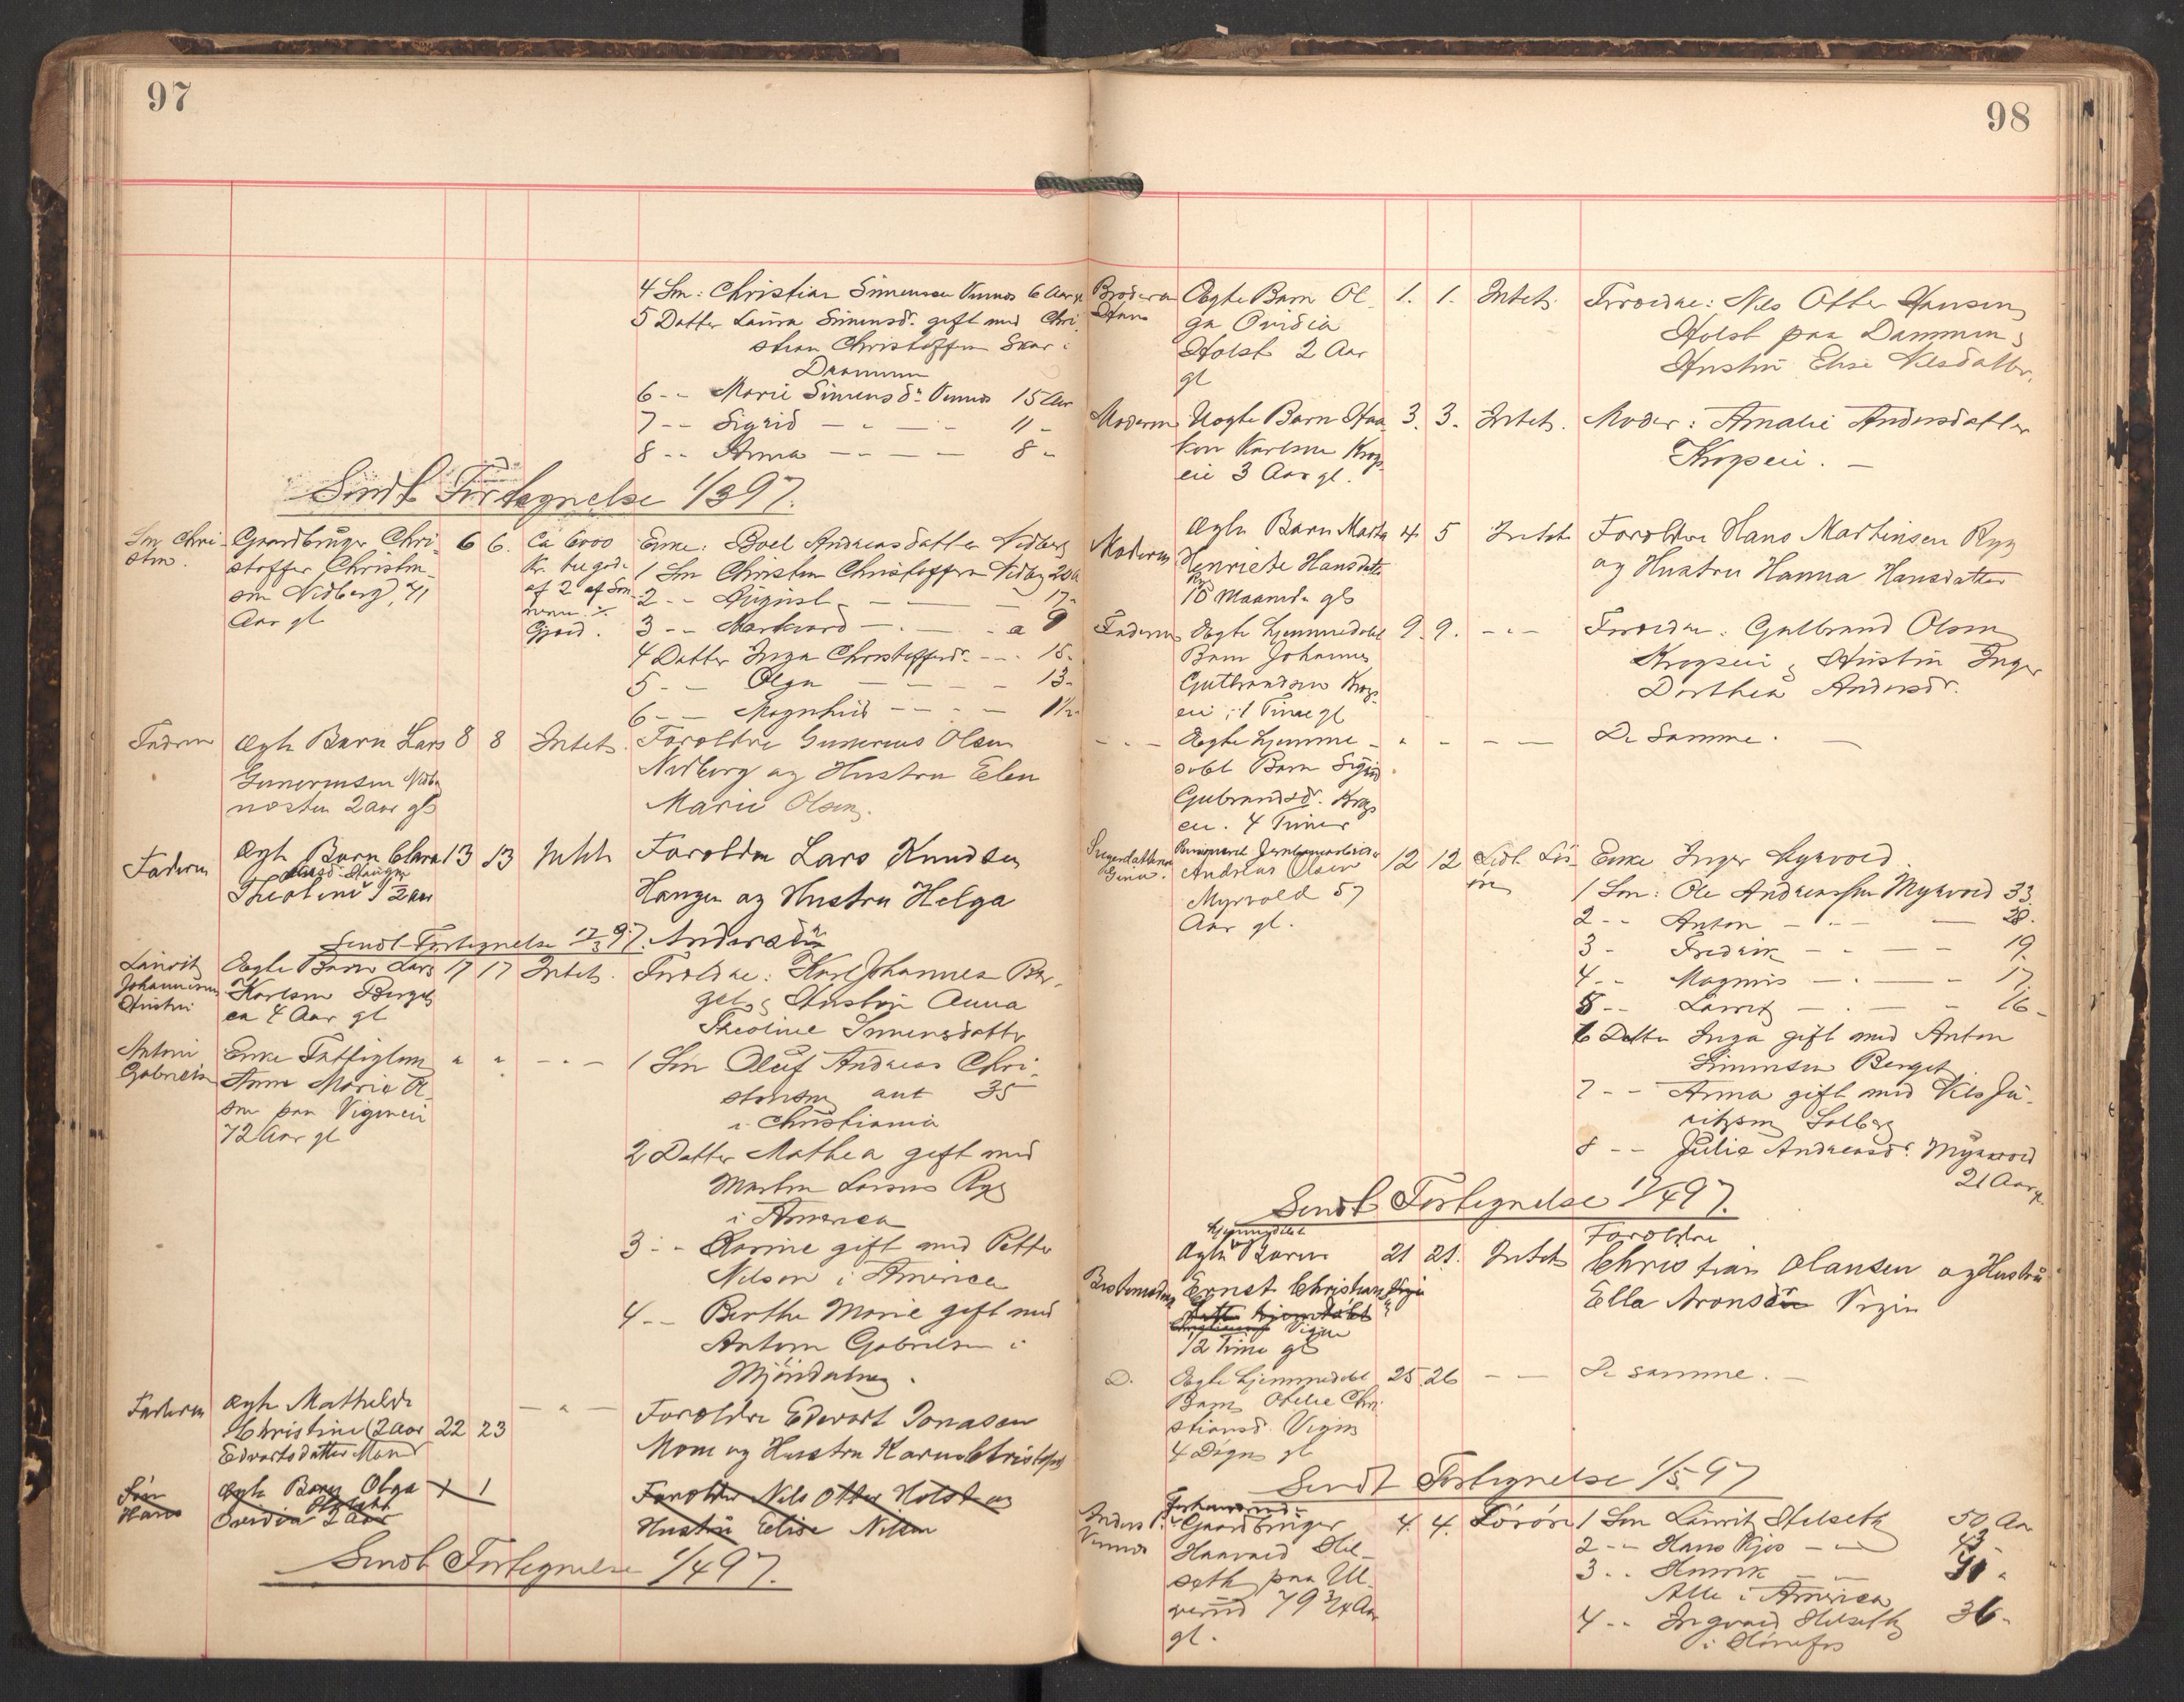 97
4 Søn: Christian Simensen Vinnes 6 Aar gl
5 Datter Laura Simensdr. gift med Chri-
stian Christoffersen Skar i
Drammen
6 - - Marie Simensdr. Vinnes 15 Aar
7 - - Sigrid - - - - 11 -
8 - - Anna - - - - 8 -
Sendt Fortegnelse 1/3 97.
Søn Chri-
stin.
Gaardbruger Chri-
stoffer Christen-
sen Nidberg, 71
Aar gl
6 6.
Ca 6000
Kr. tilgode
af 2 af Søn-
nerne i
Gjæld.
Enke: Boel Andreasdatter Nidberg
1 Søn Christen Christoffersen Nidbg 20 a
2 - - August - - - 17 -
3 - - Markvard - - - a 9
4 Datter Inga Christoffersdr. - - - 15 -
5 - - Olga - - - - 13 -
6 - - Magnhild - - - - 1½ -
Faderen
Ægte Barn Lars
Gunerius̈en Nidbg
næsten 2 aar gl
8 8
Intet.
Forældre Gunerius Olsen
Nidberg og Hustru Elen
Marie Olsen.
Faderen
Ægte Barn Clara
Larsd. Haugen
Theoline ½ aar
13 13
Intet
Forældre Lars Knudsen
Haugen og Hustru Helga
Andersdr
Sendt Fortegnelse 17/3 97.
Laurits
Johannesens
Hustru
Ægte Barn Lars
Karlsen Berget
ca 4 Aar gl
17 17
Intet.
Forældre: Karl Johannes Ber-
get & Hustru Anna
Theoline Simensdatter
Anton
Gabrielsen
Enke Fattiglem
Anne Marie Ol-
sen paa Vigeneie
72 Aar gl
" " - " -
1 Søn Oluf Andreas Chri-
stensen ant 35
i Christiania
2 Datter Mathea gift med
Martin Larsens Ryg
i America
3 - - Karine gift med Petter
Nilsen i America
4 - - Berthe Marie gift med
Anton Gabrielsen i
Mjøndalen.
Faderen
Ægte Mathilde
Christine (2 Aar
Edvartsdatter Moen
22 23
- " -
Forældre Edvart Jonasen
Moen og Hustru Karen Christofsd
Søn
Hans
Ægte Barn Olga
Ovidia Holst gbt
2 Aar
1 1
Forældre Nils Otter Holst og
Hustru Elise Nilsen
Sendt Fortegnelse 1/4 97.
98
Broderen
Hans
Ægte Barn Ol-
ga Ovidia
Holst 2 Aar
gl
1. 1.
Intet.
Forældre: Nils Otter Hansen
Holst paa Dammen &
Hustru Elise Nilsdatter.
Moderen
Uægte Barn Haa-
kon Karlsen Krogs-
eie 3 Aar gl.
3. 3.
Intet.
Moder: Amalie Andersdatter
Krogseie. -
Moderen
Ægte Barn Marta
Henriete Hansdatter
Ryg
18 Maaneder gl
4 5
Intet
Forældre Hans Martinsen Ryg
og Hustru Hanna Hansdatter
Faderen
Ægte hjemmedøbt
Barn Johannes
Gulbrandsen Krogs-
eie, 1 Time gl
9. 9.
- " -
Forældre: Gulbrand Olsen
Krogseie & Hustru Inger
Dorthea Andersdr.
- - -
Ægte hjemme-
døbt Barn Sigrid
Gulbrandsdr. Krogs-
eie. 4 Timer
" - - -
De Samme. -
Svigerdatteren
Gina.
Pensioneret Jernbanearbeider
Andreas Olsen
Myrvold 57
Aar gl.
12 12
Lidt Løs-
øre
Enke Inger Myrvold
1 Søn: Ole Andreassen Myrvold 33.
2 - - Anton - - - 28.
3 - Fredrik - - - 19.
4 - - Magnus - - - 17
5 - - Laurits - - - 16 -
6 Datter Inga gift med Anton
Simensen Berget
7 - - Anna gift med Nils Ju-
ritzen Solberg
8 - - Julie Andreasdr. Myrvold
21 Aar gl.
Sendt Fortegnelse 17/4 97.
Brodermoderen
hjemmedøbt
Ægte Barn
Ernst Christiansen Vigen
Vigen
12 Time gl
21 21.
Intet
Forældre
Christian Olausen og Hustru
Ella Aronsdr Vigen
D.
Ægte hjemmedøbt
Barn Otelie Chri-
stiansd. Vigen
4 Døgn gl
25 26
- -
De samme. -
Sendt Fortegnelse 1/5 97
Anders P.
Vinnes
Forhenværende
Gaardbruger
Haavard Hel-
seth paa Ul-
verud 79 3/4 Aar
gl.
4. 4.
Løsøre
1 Søn Laurits Helseth 50 Aar
2 - - Hans Kjos - - 43 -
3 - - Henrik - - 40 "
Alle i America
4 - - Ingvald Helseth 36 -
i Hønefos